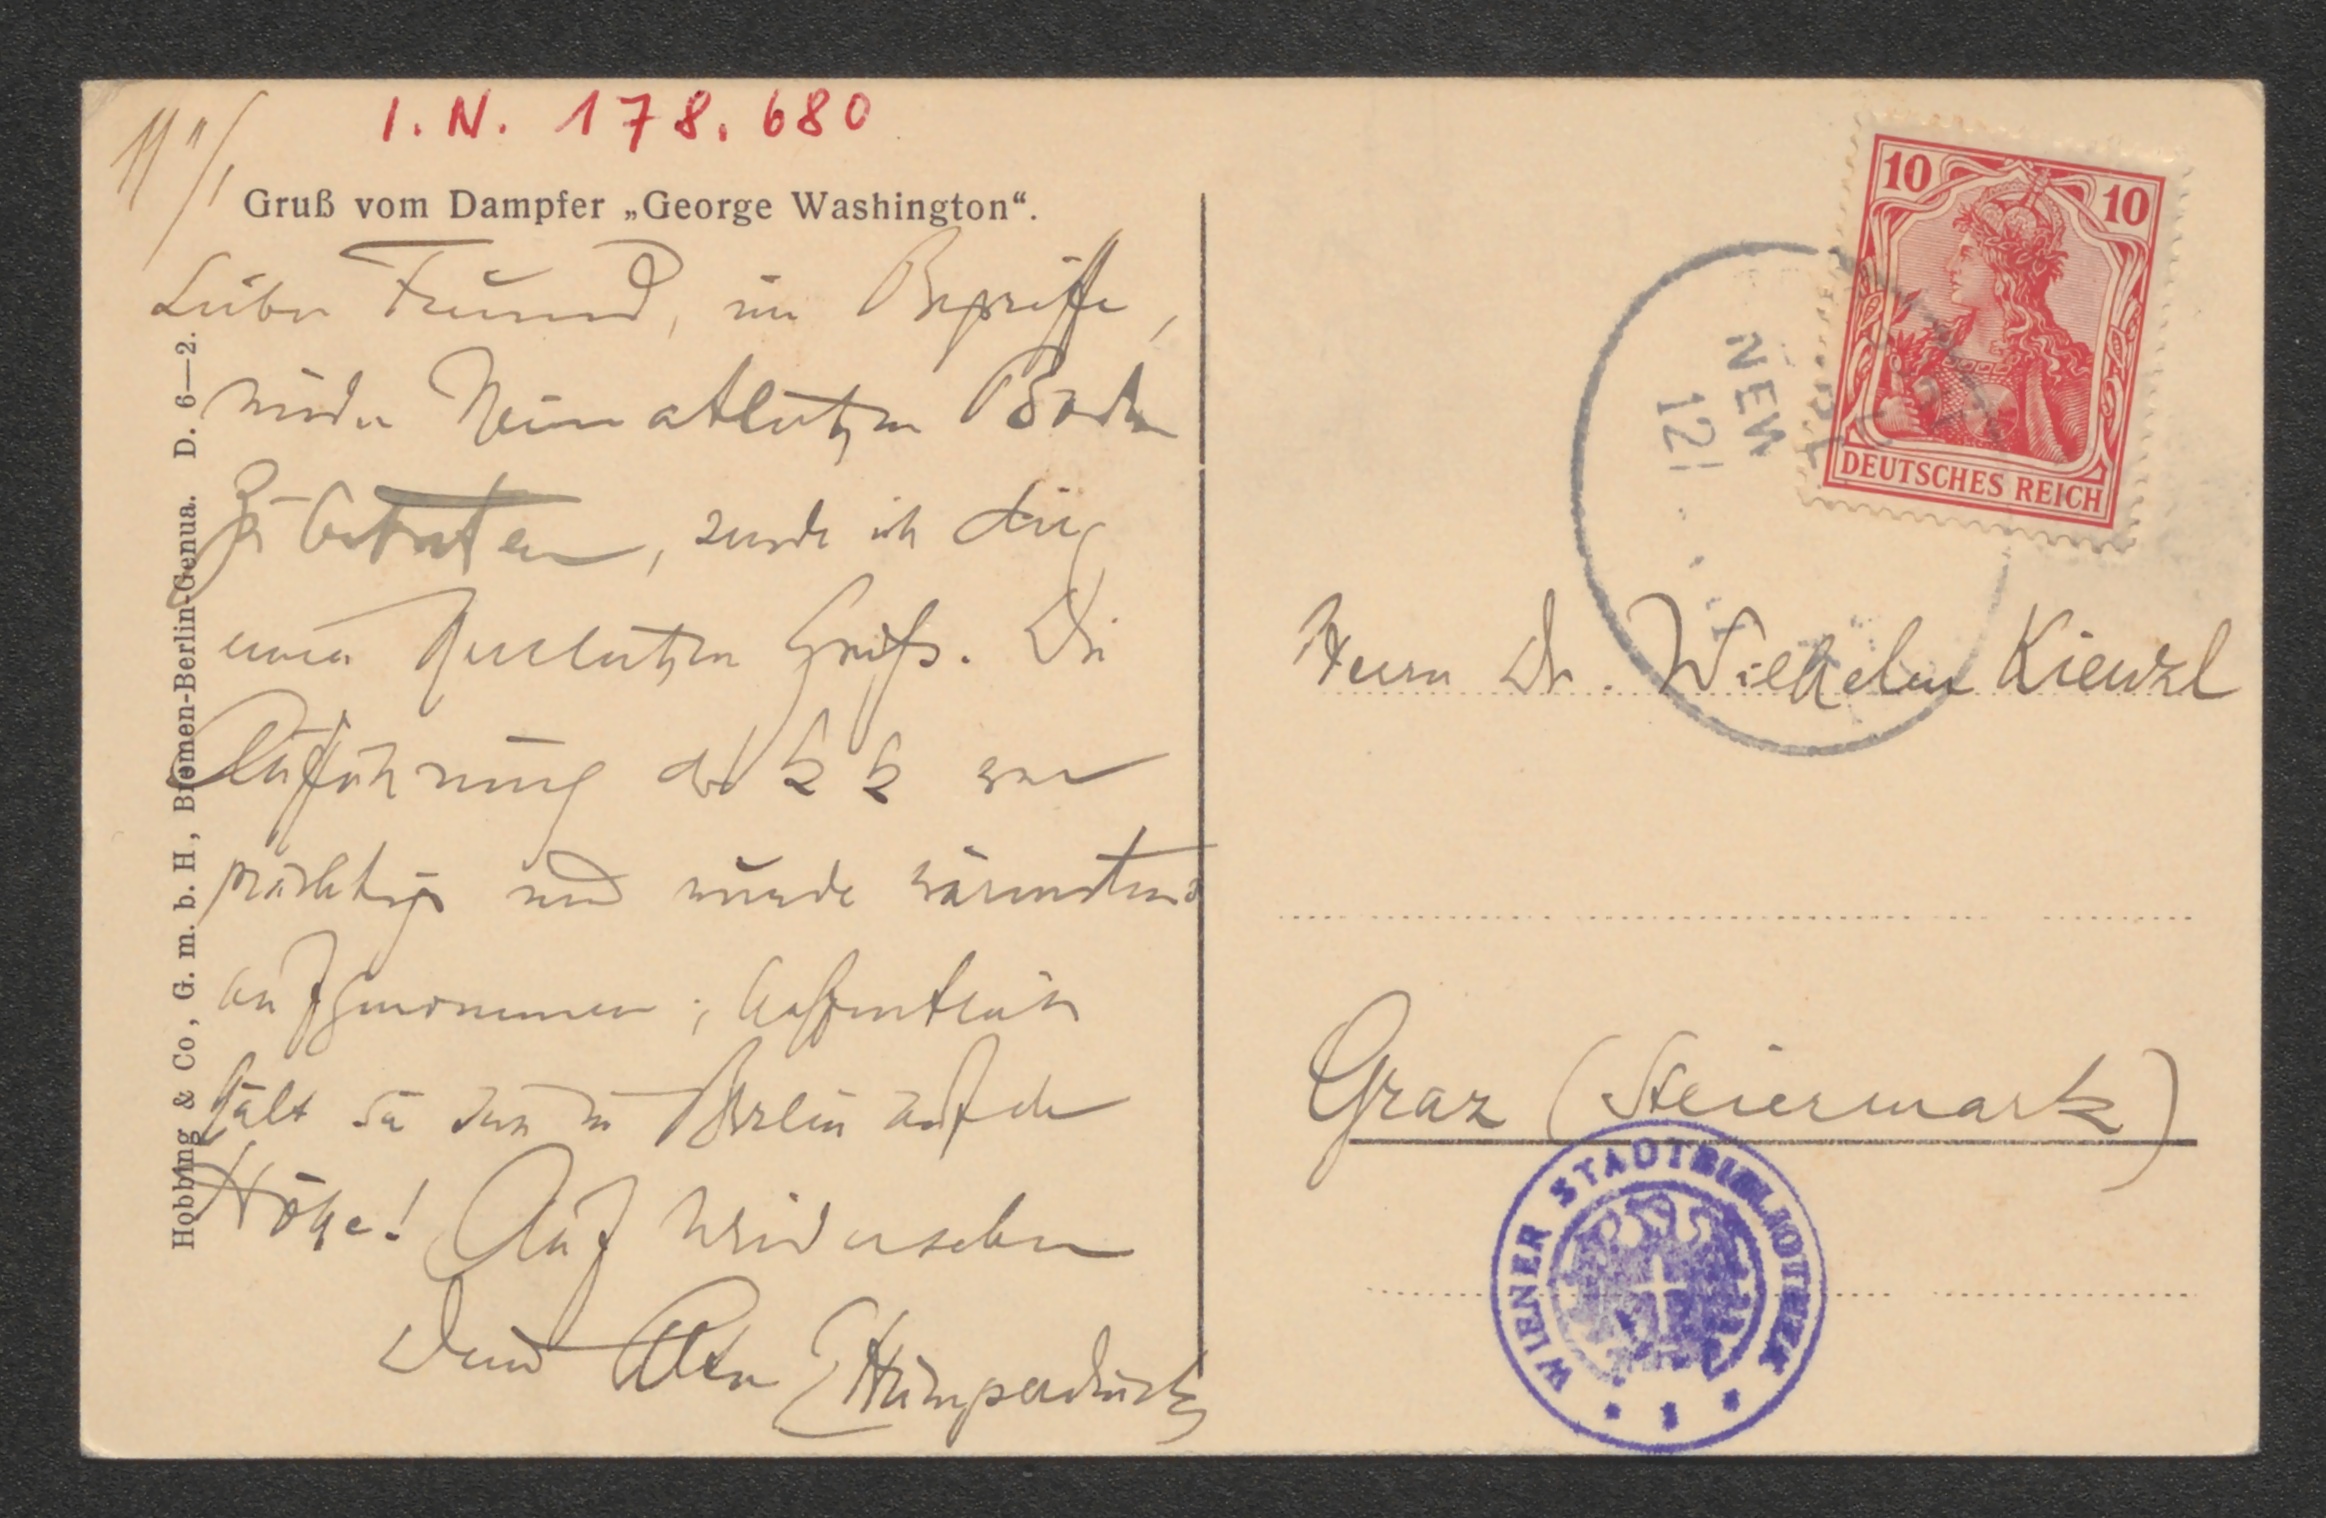 I. N. 178.680
11/1
Gruß vom Dampfer „George Washington“.
Lieber Freund, im Begriffe,
wieder heimatlichen Boden
zu betreten, sende ich dir
einen herzlichen Gruß. Die
Aufführung der K K war
prächtig und wurde wärmstens
aufgenommen; hoffentlich
hält sie sich in Berlin auf der
Höhe! Auf Wiedersehen
Dein alter EHumperdinck
Hobbing & Co., G. m. b. H., Bremen-Berlin-Genua. D. 6—2.
10 10
DEUTSCHES REICH
NEW
12
Herrn Dr. Wilhelm Kienzl
Graz (Steiermark)
WIENER STADTBIBLIOTHEK